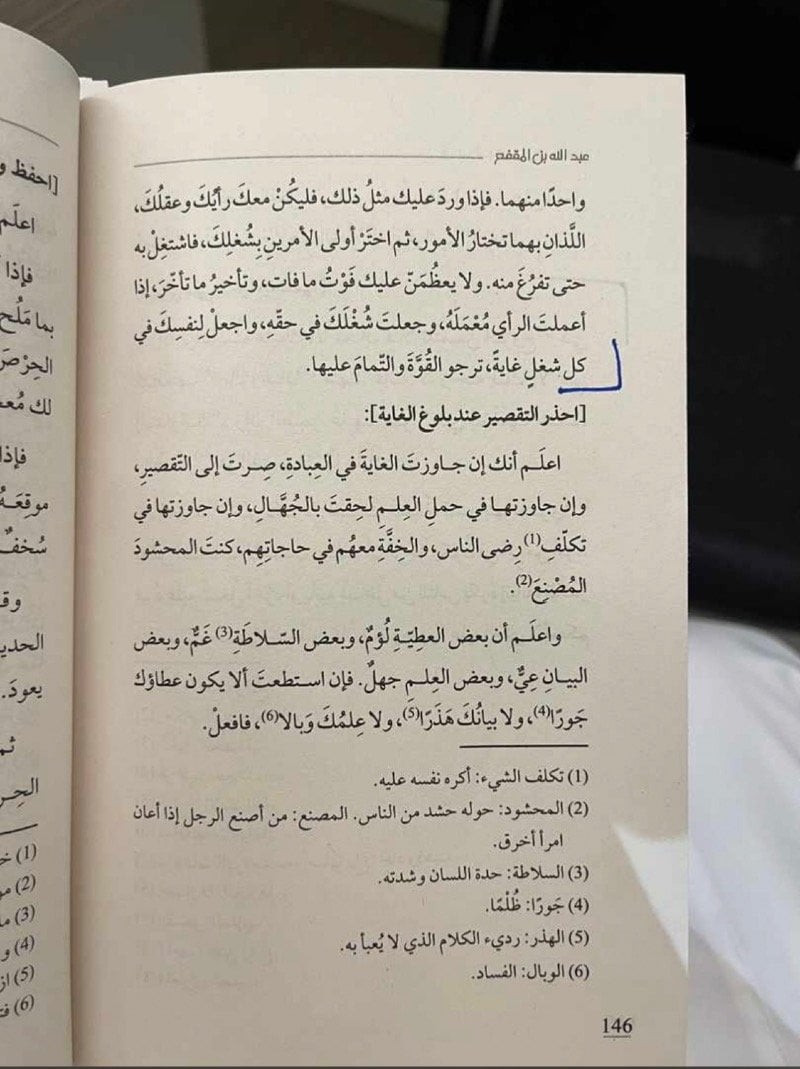 عبد الله بن المقفع
واحدًا منهما. فإذا وردَ عليك مثلُ ذلك، فليكُنْ معكَ رأيُكَ وعقلُكَ،
اللَّذانِ بهما تختارُ الأمور، ثم اختَرْ أولى الأمرينِ بِشُغلِكَ، فاشتغِلْ به
حتى تفرُغَ منه. ولا يعظُمَنّ عليك فَوْتُ ما فات، وتأخيرُ ما تأخّرَ، إذا
أعملتَ الرأي مُعْمَلَهُ، وجعلتَ شُغْلَكَ في حقّهِ، واجعلْ لِنفسِكَ في
كل شغلٍ غايةً، ترجو القُوَّةَ والتّمامَ عليها.
[احذر التقصير عند بلوغ الغاية]:
اعلَم أنك إن جاوزتَ الغايةَ في العِبادةِ، صِرتَ إلى التّقصيرِ،
وإن جاوزتها في حملِ العِلمِ لحِقتَ بالجُهَّالِ، وإن جاوزتها في
تكلّفِ(1) رِضى الناس، والخِفَّةِ معهُم في حاجاتِهِم، كنتَ المحشودَ
المُصْنِعَ(2).
واعلَم أن بعض العطيّةِ لُؤمٌ، وبعض السّلاطَةِ(3) غَمٌّ، وبعض
البيانِ عِيٌّ، وبعض العِلمِ جهلٌ. فإن استطعتَ ألا يكون عطاؤك
جَورًا(4)، ولا بيانُكَ هَذَرًا(5)، ولا عِلمُكَ وَبالا(6)، فافعلْ.
(1) تكلف الشيء: أكره نفسه عليه.
(2) المحشود: حوله حشد من الناس. المصنع: من أصنع الرجل إذا أعان
امرأ أخرق.
(3) السلاطة: حدة اللسان وشدته.
(4) جَورًا: ظُلْمًا.
(5) الهذر: رديء الكلام الذي لا يُعبأ به.
(6) الوبال: الفساد.
146
[احفظ و
اعلَم
فإذا
بما مَلُح
الحِرْصَ
فإذا
موقِعَهُ
سُخفٌ
يعودَ.
(1)
(2)
(3)
(4)
(5)
(6)